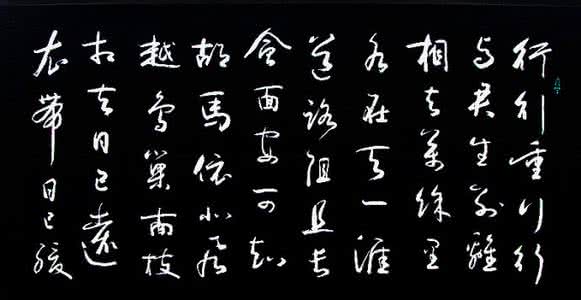 行行重行行
与君生别離
相去萬餘里
各在天一涯
道路阻且長
會面安可知
胡馬依北風
越鳥巢南枝
相去日已遠
衣帶日已緩